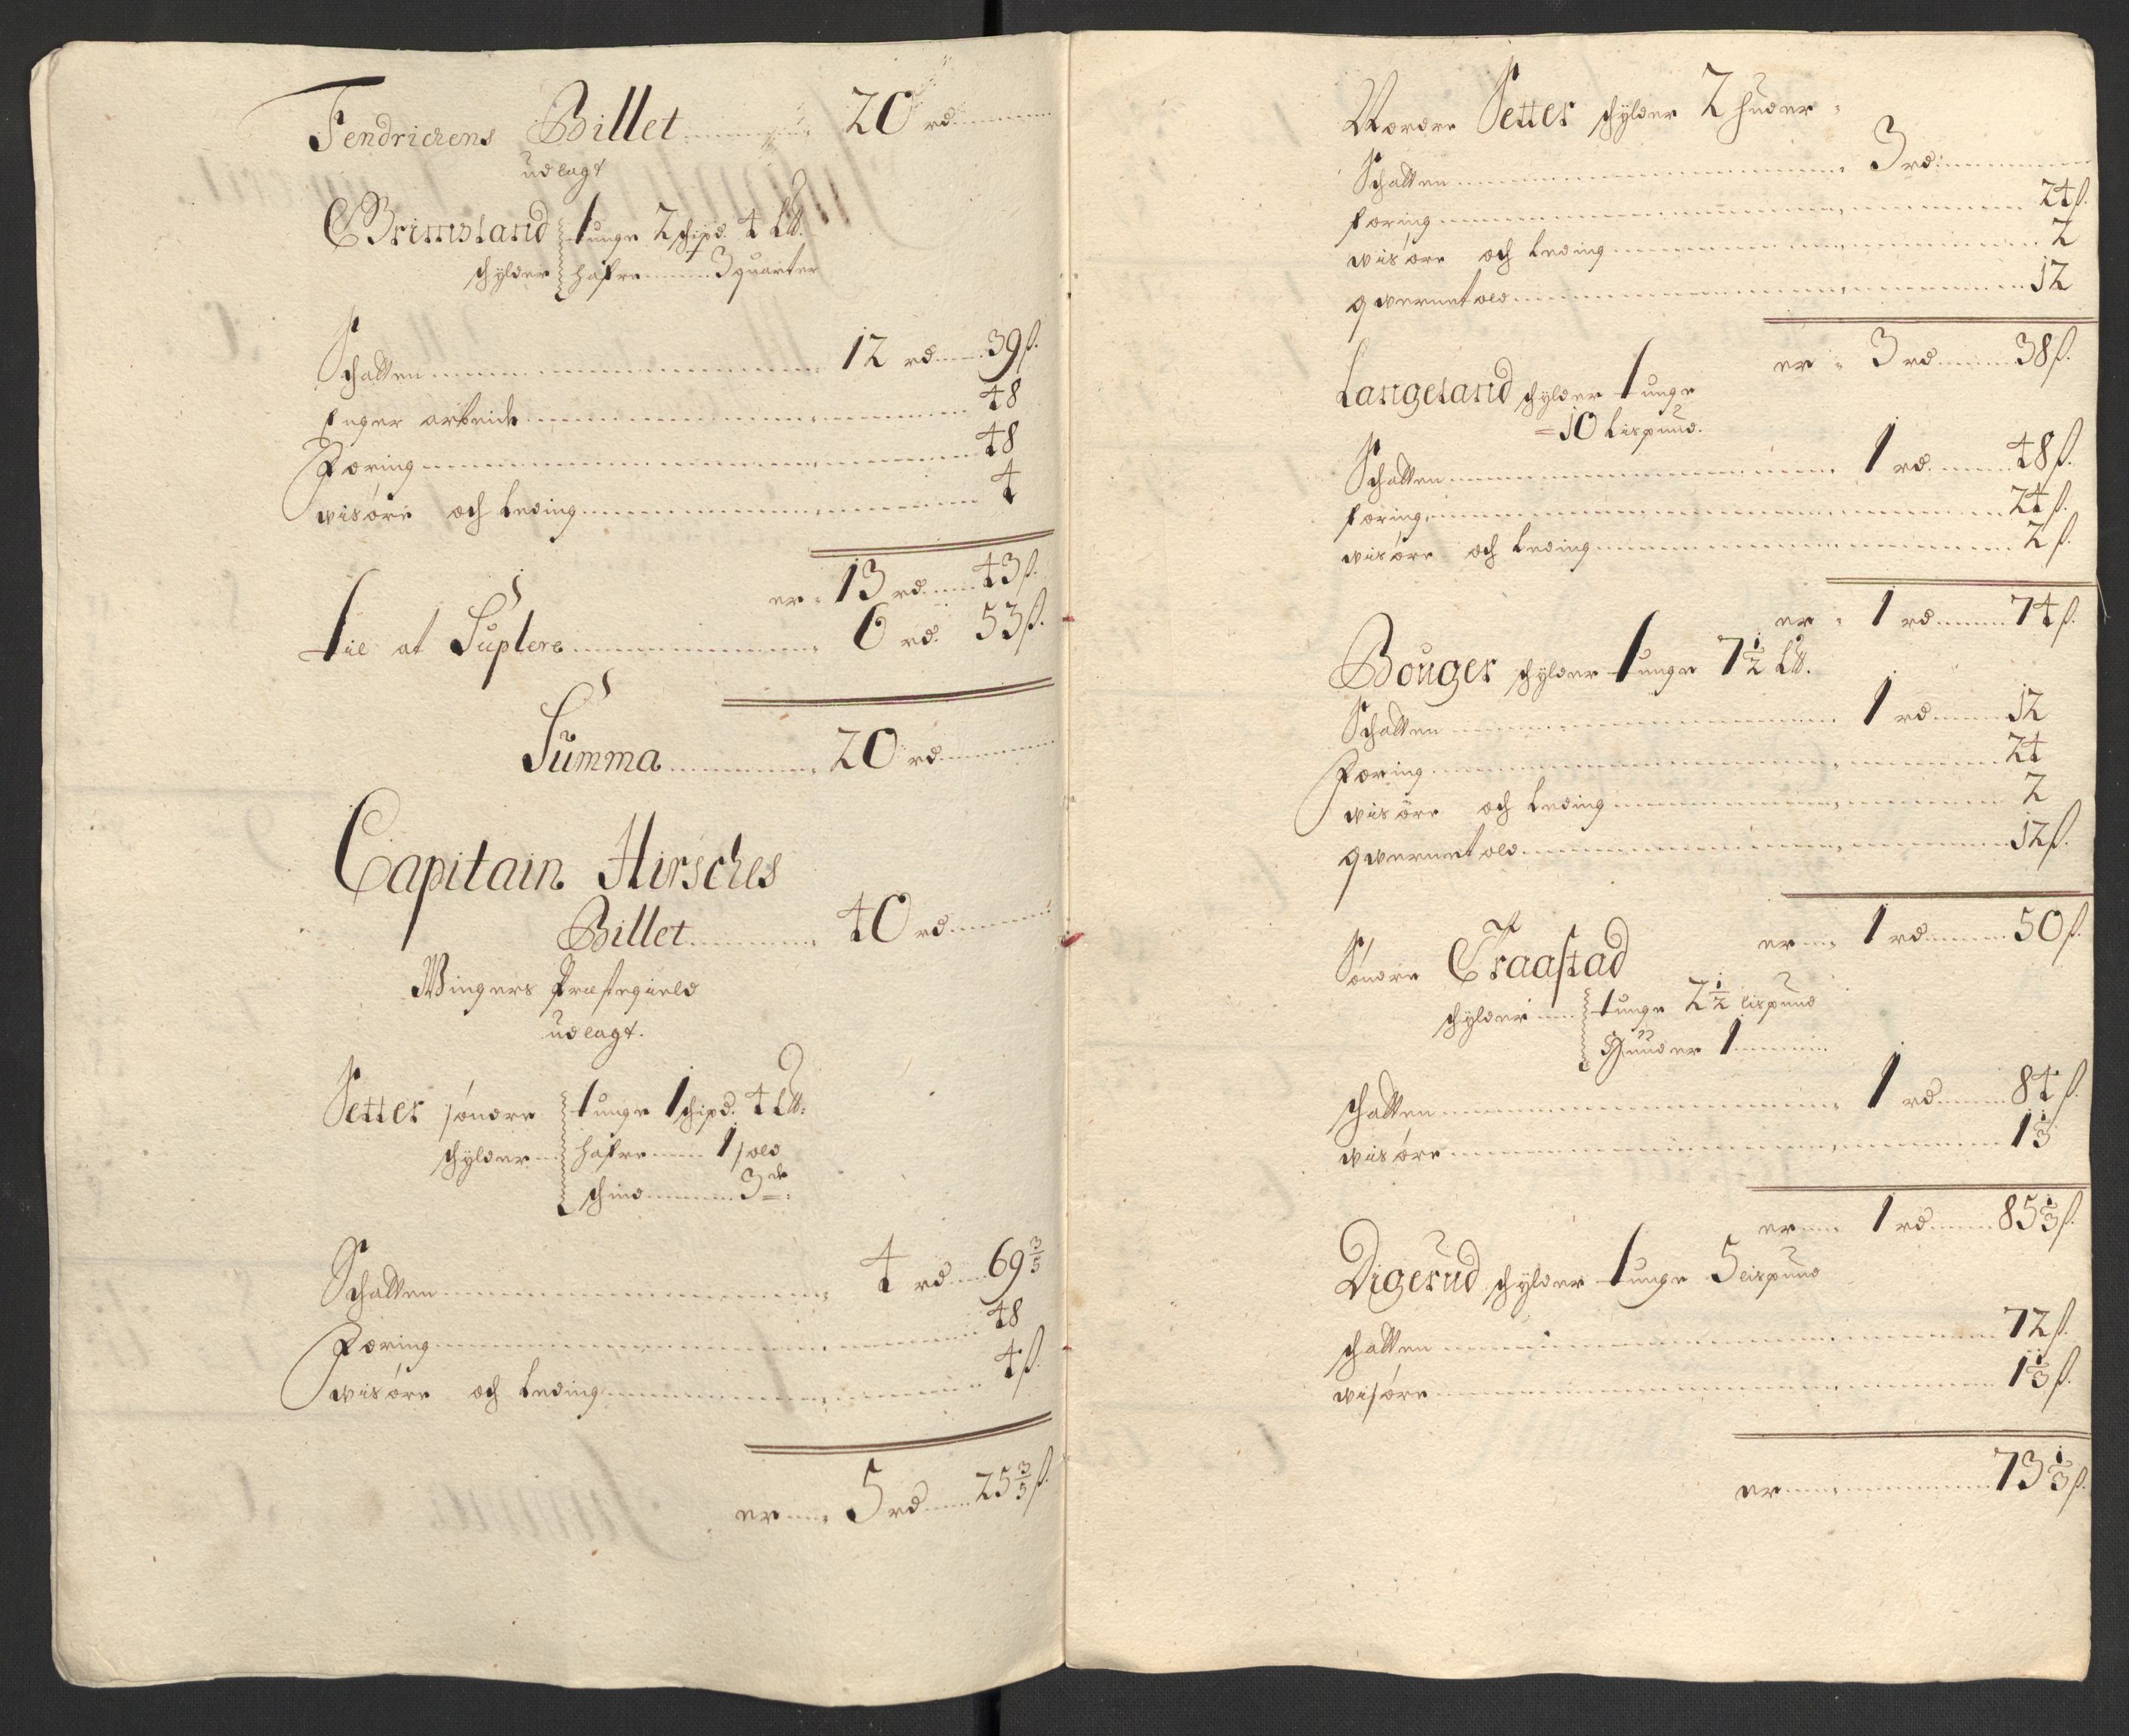 Fendrichens Billet 20 rd
udlagt
Grimsland tunge 2 schipd. 4 L℔.
schylder hafre 3 quarter
Schatten 12 rd 39 ß.
foger arbeide 48
Foring 48
wisöre och Leding 4
er 13 rd 43 ß.
til at Suplere 6 rd. 53 ß.
Summa 20 rd
Capitain Hirsches
Billet 40 rd
Wingers Præstegield
udlagt.
Setter söndre tunge 1 schipd. 4 L℔.
schylder hafre 1 sold
schind 3 de
Schatten 4 rd 69 3/5
Foring 48
wisöre och Leding 4 ß.
er 5 rd 25 3/5 ß.
Nordre Setter schylder 2 huder
Schatten 3 rd
foring 24 ß.
wisöre och Leding 2
qwerne told 12
er 3 rd 38 ß.
Langeland schylder tunge
10 Lispund.
Schatten 1 rd 48 ß.
foring 24 ß.
wisöre och Leding 2 ß.
er 1 rd 74 ß.
Bouger schylder tunge 7 1/2 L℔.
Schatten 1 rd 12
Foring 24
wisöre och Leding 2
qwerne told 12 ß.
er 1 rd 50 ß.
Söndre Traastad
schylder tunge 2 1/2 lispund
Huuder 1
schatten 1 rd 84 ß.
wisöre 1 1/3
er 1 rd 85 1/3 ß.
Digerud schylder tunge 5 lispund
schatten 72 ß.
wisöre 1 1/3 ß.
er 73 1/3 ß.